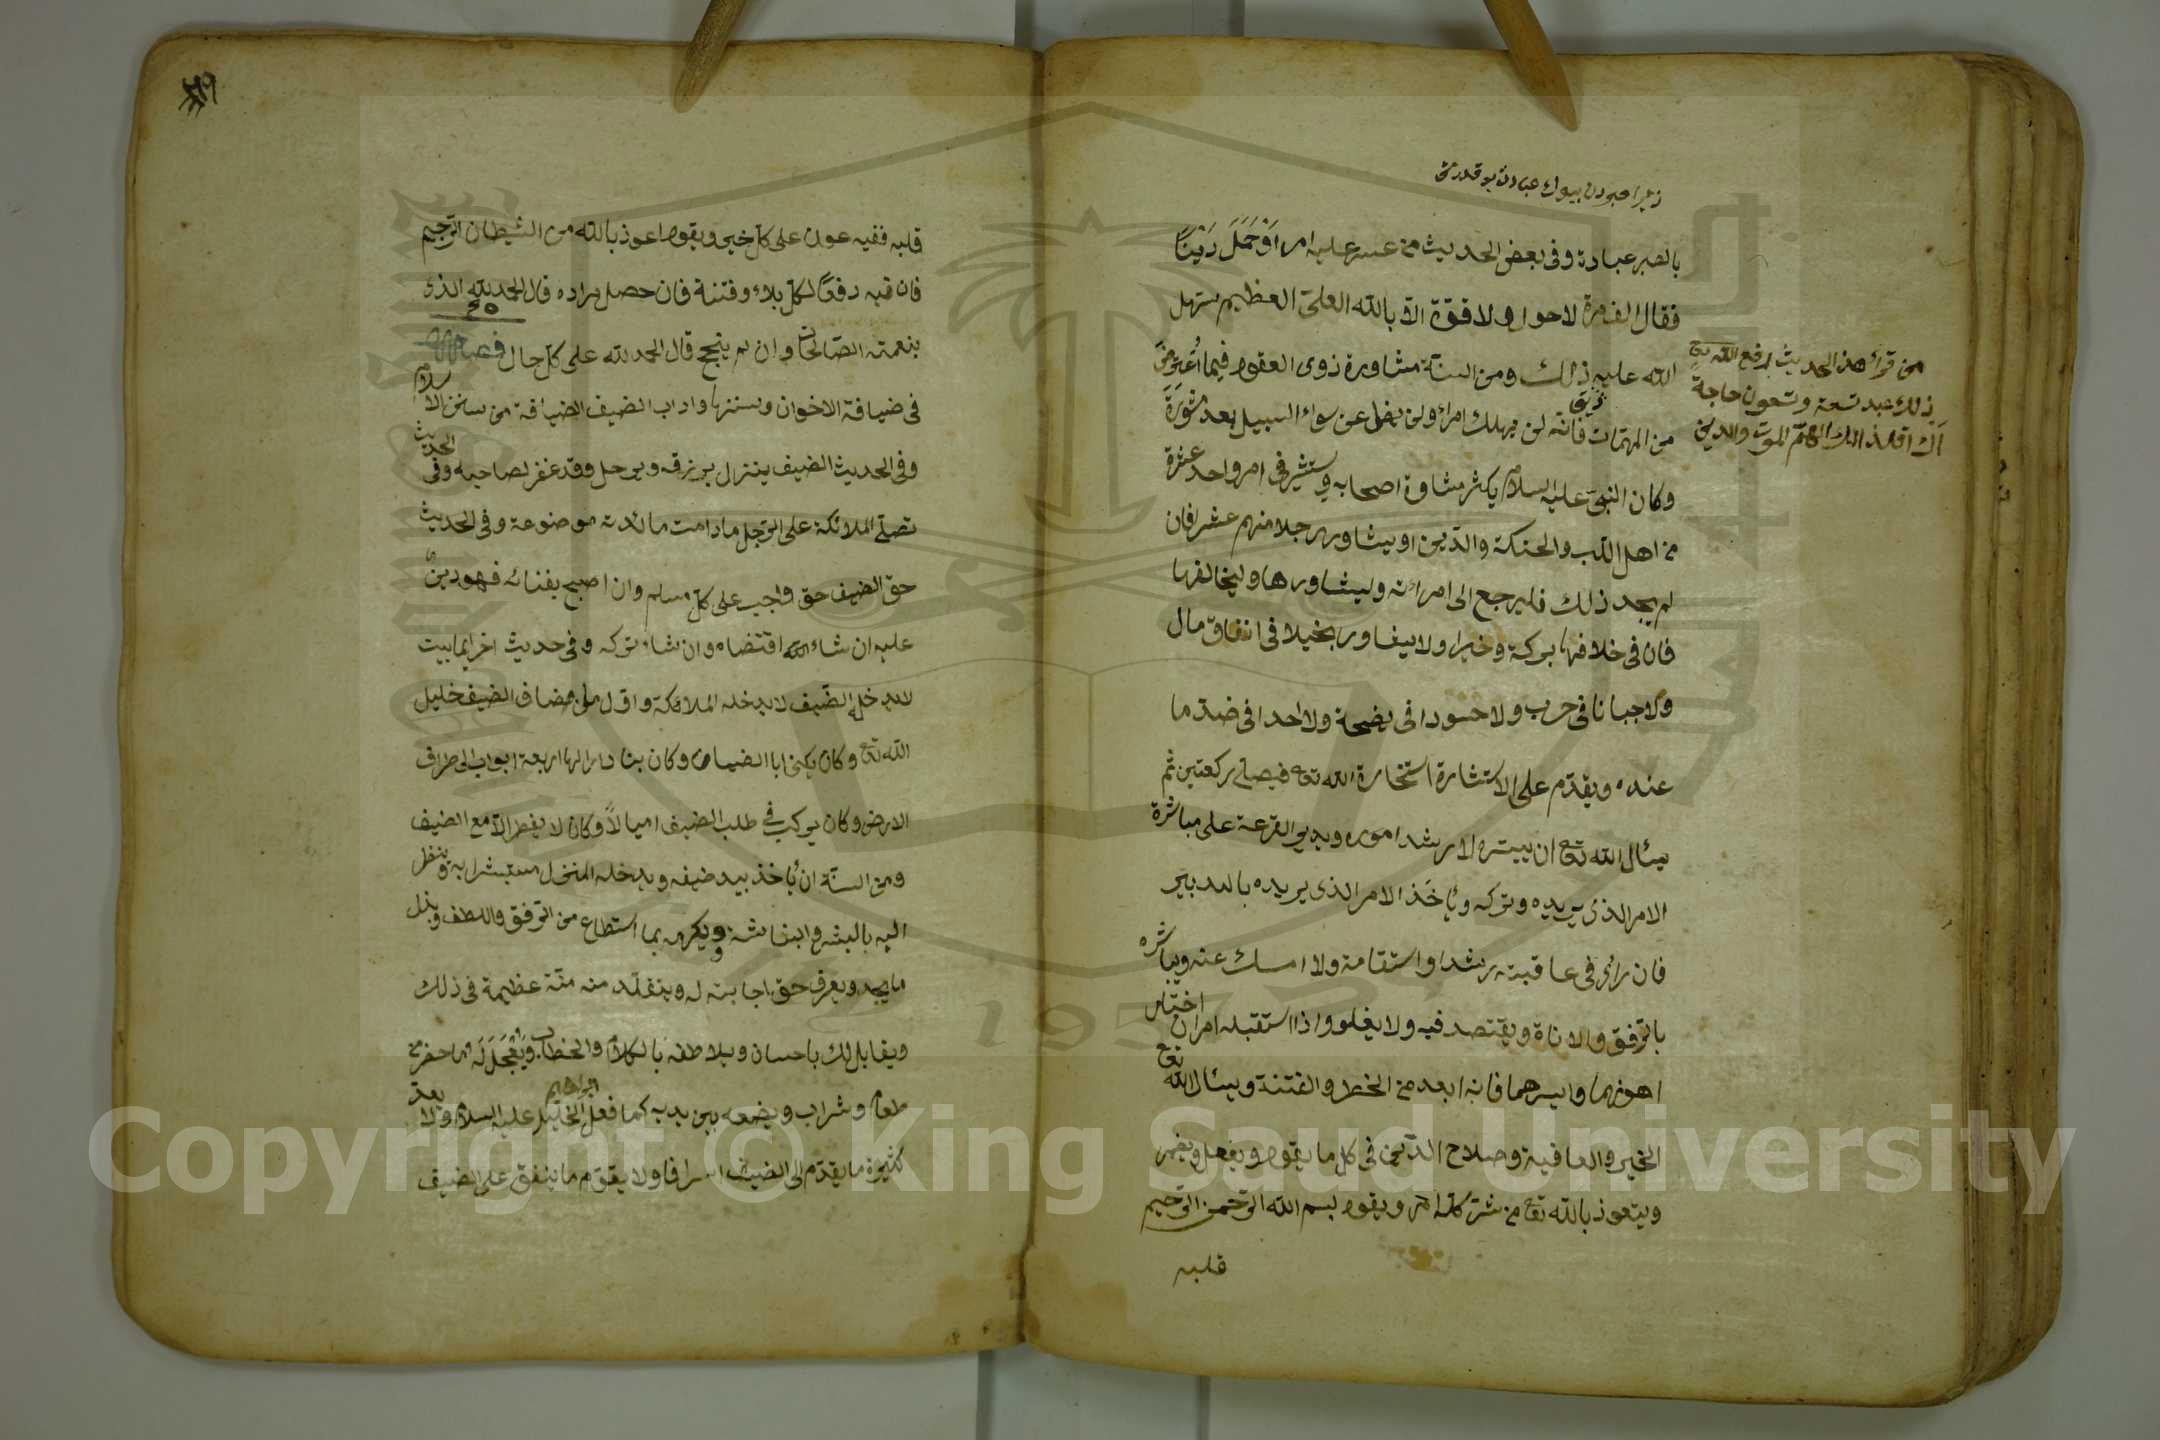 بالصبر عبادة وفى بعض الحديث من عسر عليه امر اَوْحَمَلَ دَيْنًا
فقال الف مرة لاحول ولا قوّة الاّ بالله العلىّ العظيم سهّل
الله عليه ذلك ومن السنّة مشاورة ذوى العقول فيما
من المهمات فانّه لن يهلك امرأ ولن يضل عن سواء السبيل بعد مَشْوَرَةٍ
وكان النبىّ عليه السلام يكثر مشاورة اصحابه ويستشير فى امر واحد عشرة
من اهل اللّب والحنكة والدّين او يشاور رجلا منهم عشرا فان
لم يجد ذلك فليرجع الى امرأته وليشاورها وليخالفها
فان فى خلافها بركة وخيرا ولا يشاور بخيلا فى انفاق مال
ولا جبانا فى حرب ولا حسودا فى نصيحة ولا احدا فى ضدّ ما
عنده ويقدّم على الاستشارة استخارة الله تعالى فيصلى ركعتين ثم
يسأل الله تع ان ييسره لارشد اموره ويدير القرعة على مباشرة
الامر الذى يريده وتركه ويأخَذ الامر الذى يريده بالتدبير
فان رأى فى عاقبته رشدا واستقامة ولا امسك عنه ويباشره
بالرّفق والاناة ويقتصد فيه ولا يغلو واذا استقبله امران اختار
اهونهما وايسرهما فانه ابعد من الخطر والفتنة ويسأل الله تع
الخير والعافية وصلاح الدّين فى كل ما يقول ويفعل ويضمر
ويتعوذ بالله تع من شرّ كلّ امر ويقول بسم الله الرّحمن الرّحيم
قلبه
من قرأ هذا الحديث يرفع الله تع
ذلك عبد تسعة وتسعون حاجة
الهمّ الموت والدين
قلبه ففيه عون على كلّ خير ويقول اعوذ بالله من الشيطان الرّجيم
فان فيه دفعًا لكلّ بلاء وفتنة فان حصل مراده قال الحمد لله الذى
بنعمته الصّالحات وان لم ينجح قال الحمد لله على كلّ حال فصل
فى ضيافة الاخوان وسننها واداب الضيف الضيافة من سنن الاسلام
وفى الحديث الضيف ينزل برزقه ويرحل وقد غفر لصاحبه وفى الحديث
تصلّى الملائكة على الرّجل مادامت مائدته موضوعة وفى الحديث
حق الضيف حق واجب على كلّ مسلم وان اصبح بفنائه فهو دين
عليه ان شاء اقتضاه وان شاء تركه وفى حديث اخر ايما بيت
لا يدخل الضّيف لا يدخله الملائكة واوّل من اضاف الضيف خليل
الله تع وكان يكنى ابا الضيفان وكان بنا دارا لها اربعة ابواب الى اطراف
الارض وكان يركب فى طلب الضيف اميالاً وكان لا يفطر الاّ مع الضيف
ومن السنّة ان يأخذ بيد ضيفه ويدخله المنزل مستبشرا به وينظر
اليه بالبشر والبشاشة ويكرمه بما استطاع من الرّفق واللطف وبذل
ما يجد ويعرف حق اجابته له ويتقلّد منه منّة عظيمة فى ذلك
ويقابل لك باحسان ويلاطفه بالكلام والخطاب ويُعَجِلَ لَه ما حضر من
طعام وشراب ويضعه بين يديه كما فعل ابراهيم الخليل عليه السلام ولا يعدّ
كثير ما يقدّم الى الضيف اسرافا ولا يقوّم ما ينفق على الضيف
Copyright © King Saud University
1957